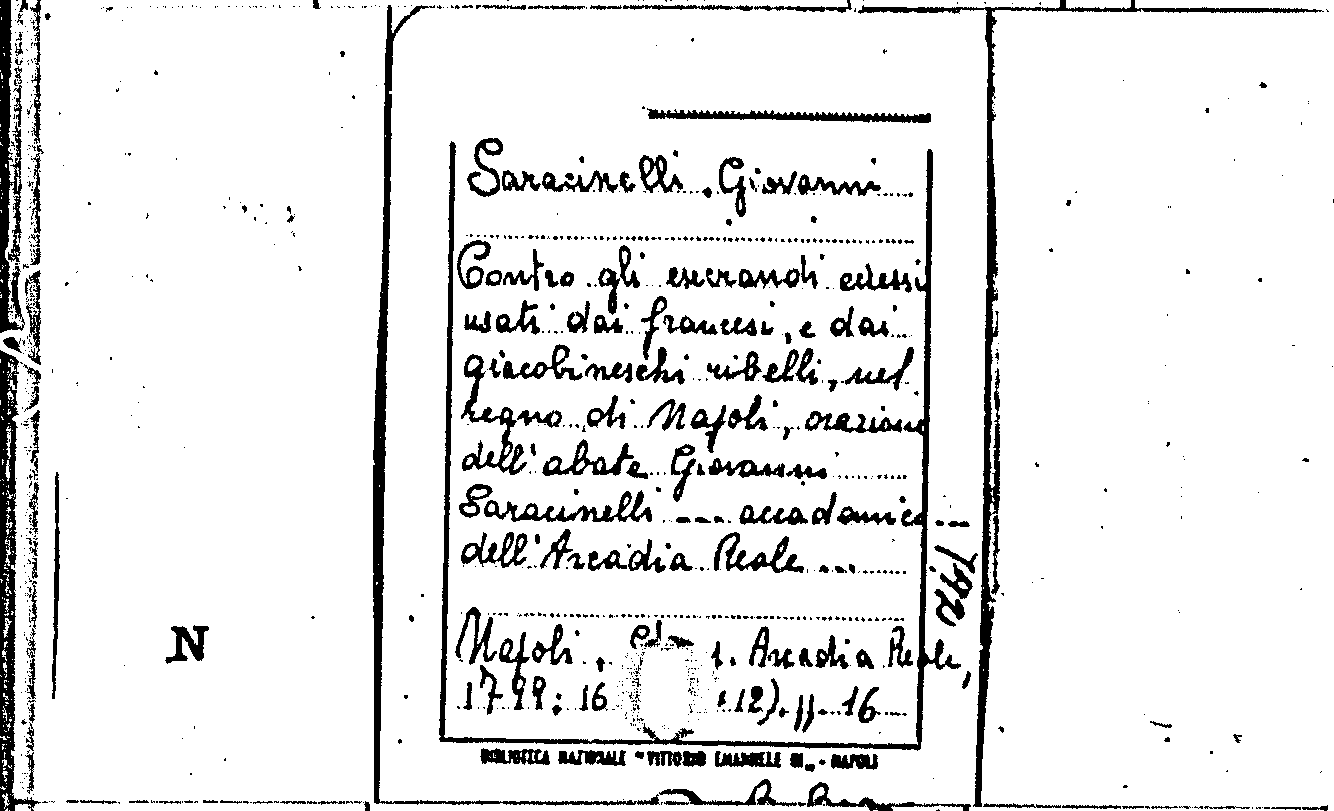 Saracinelli, Giovanni
Contro gli esecrandi eccessi
usati dai francesi, e dai
giacobineschi ribelli, nel
regno di Napoli, orazione
dell'abate Giovanni
Saracinelli --- accademico ...
dell'Arcadia Reale ...
Napoli, 1. Arcadia Reale,
1799: 16 12). pp. 16
N
BIBLIOTECA NAZIONALE "VITTORIO EMANUELE III" - NAPOLI